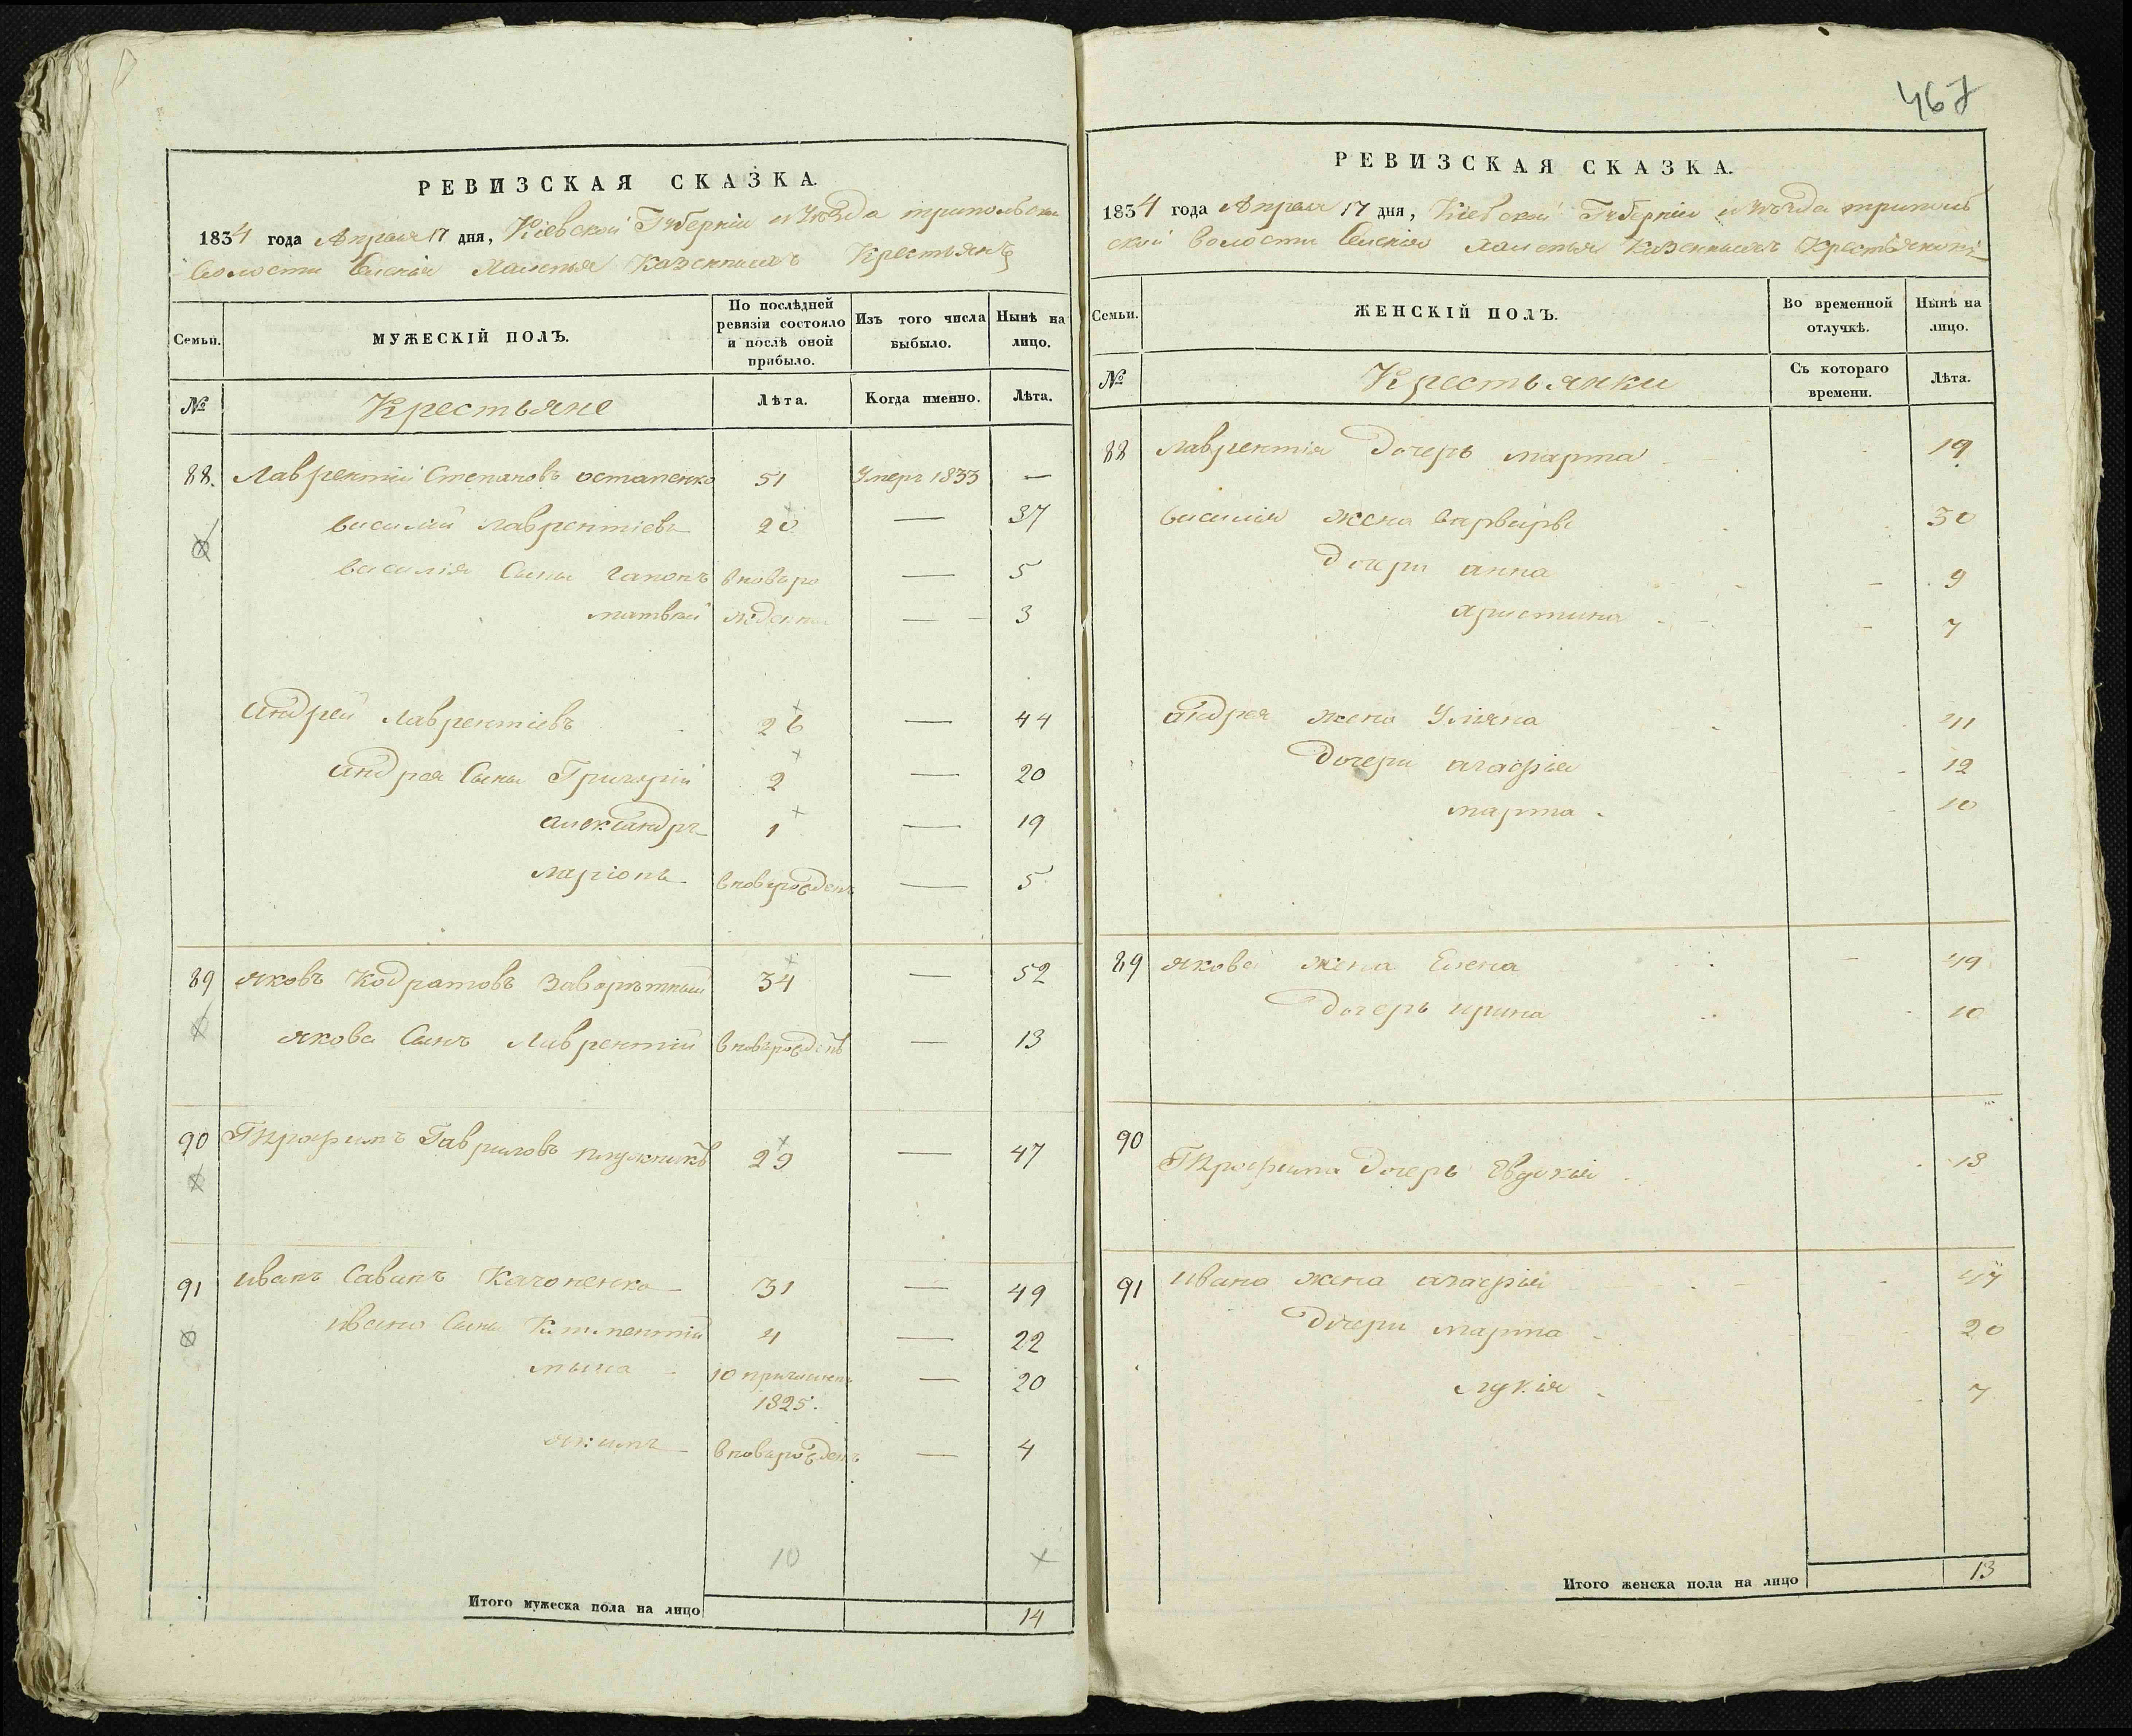 467
РЕВИЗСКАЯ СКАЗКА.
1834 года Апреля 17 дня, Кіевской Губерніи и Уѣзда трипольской
Волости Селенія Халепья Казенныхъ Крестьянъ
Семьи.
МУЖЕСКІЙ ПОЛЪ.
По послѣдней ревизіи состояло и послѣ оной прибыло.
Изъ того числа выбыло.
Нынѣ на лицо.
№
Крестьяне
Лѣта.
Когда именно.
Лѣта.
88. Лаврентій Степановъ остапенко 51 Умеръ 1833 —
василій лаврентіевъ 20 — 37
василія Сыны гапонъ вновь ро — 5
матвѣй жденны — 3
андрей лаврентіевъ 26 — 44
андрея Сыны Григорій 2 — 20
александръ 1 — 19
ларіонъ вноворожденъ — 5
89 яковъ Кодратовъ Заворотный 34 — 52
якова Сынъ Лаврентій вноворожденъ — 13
90 Трофимъ Гавриловъ плужникъ 29 — 47
91 иванъ Савинъ 31 — 49
ивана Сыны 4 — 22
10 причисленъ — 20
1825.
якимъ вноворожденъ — 4
10
Итого мужеска пола на лицо 14
РЕВИЗСКАЯ СКАЗКА.
1834 года Апреля 17 дня, Кіевской Губерніи и уѣзда триполь
ской Волости Селенія халепья Казенныхъ Крестьянокъ
Семьи.
ЖЕНСКІЙ ПОЛЪ.
Во временной отлучкѣ.
Нынѣ на лицо.
№
Крестьянки
Съ котораго времени.
Лѣта.
88 лаврентія Дочерь марта 19
василія жена варвара 30
Дочери анна — 9
христина — 7
андрея жена Уляна 41
Дочери агафія 12
марта 10
89 якова жена Елена — 49
дочерь ирина 10
90
Трофима Дочерь Евдокія 13
91 ивана жена агафія 47
Дочери марта 20
лукія 7
Итого женска пола на лицо 13